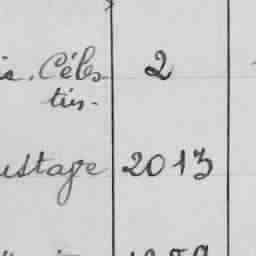 is. Céles- 2
tin.-
ustage 2013